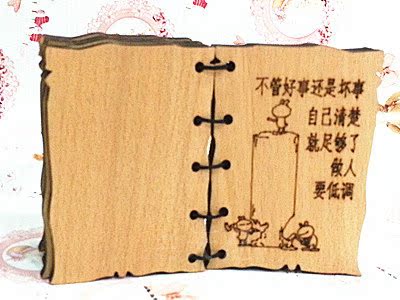 不管好事还是坏事
自己清楚
就足够了
做人
要低调